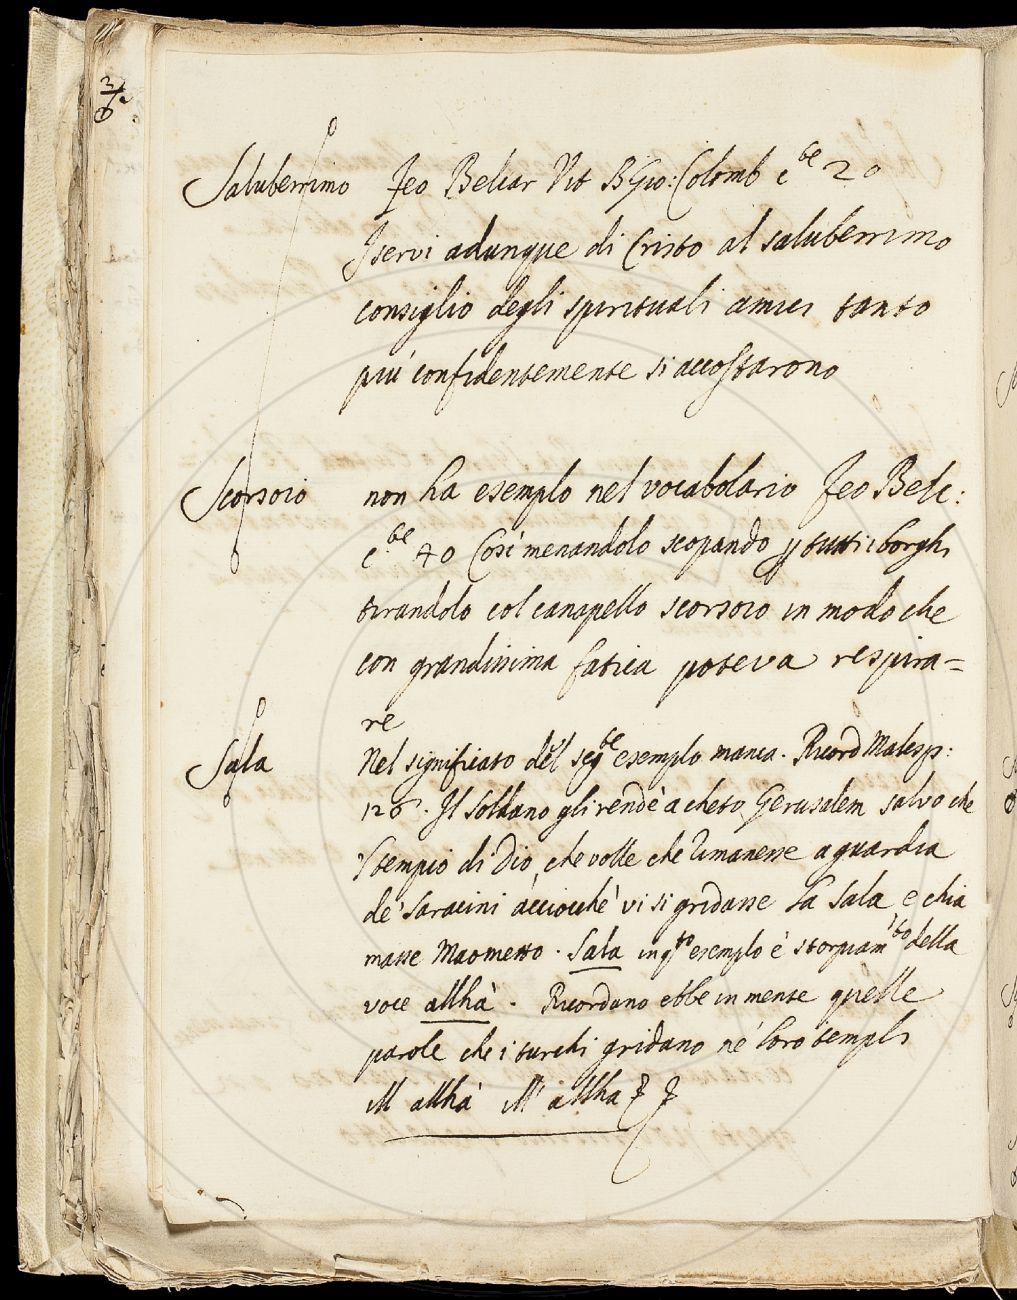 Saluberrimo Feo Belcar Vit B Gio: Colomb c^be 20
I servi adunque di Cristo al saluberrimo
consiglio degli spirituali amici tanto
più confidentemente si accostarono
Scorsoio non ha esemplo nel vocabolario Feo Belc:
c^be 40 Così menandolo scopando p tutti i borghi
tirandolo col canapello scorsoio in modo che
con grandissima fatica poteva respira=
re
Sala Nel significato del seg^te esemplo manca. Ricord Malesp:
126. Il Soldano gli rendè a cheto Gerusalem salvo che
'l tempio di Dio, che volle che rimanesse a guardia
de' Saracini acciocché vi si gridasse la Sala e chia
masse Maometto. Sala in q^to esemplo è storpiam^to della
voce allhà. Ricordano ebbe in mente quelle
parole che i turchi gridano ne' loro templi
Ill allhà Ill allha